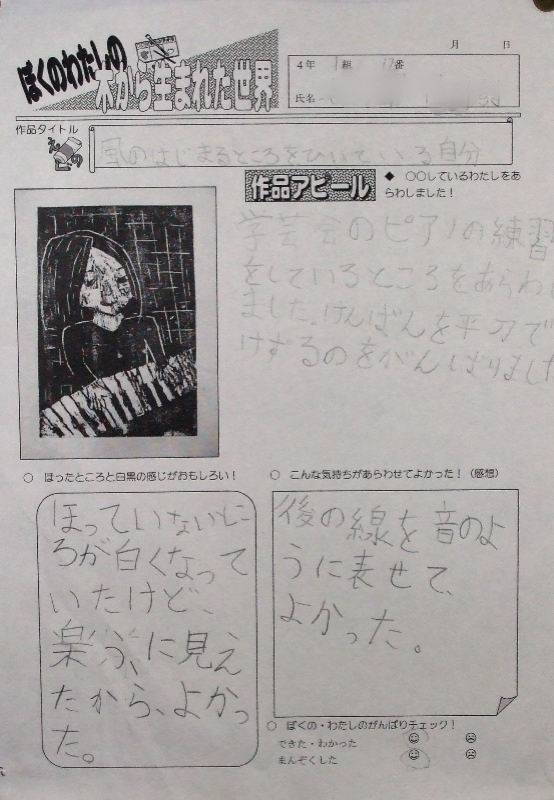 ぼくのわたしの
木から生まれた世界
月 日
4年 1組 番
氏名
作品タイトル
風のはじまるところをひいている自分
作品アピール
◆ ○○しているわたしをあ
らわしました！
学芸会のピアノの練習
をしているところをあらわし
ました。けんばんを平刀で
けずるのをがんばりました
○ ほったところと白黒の感じがおもしろい！
ほっていないとこ
ろが白くなって
いたけど、
楽ふ、に見え
たから、よかっ
た。
○ こんな気持ちがあらわせてよかった！（感想）
後の線を音のよ
うに表せて、
よかった。
○ ぼくの・わたしのがんばりチェック！
できた・わかった
まんぞくした